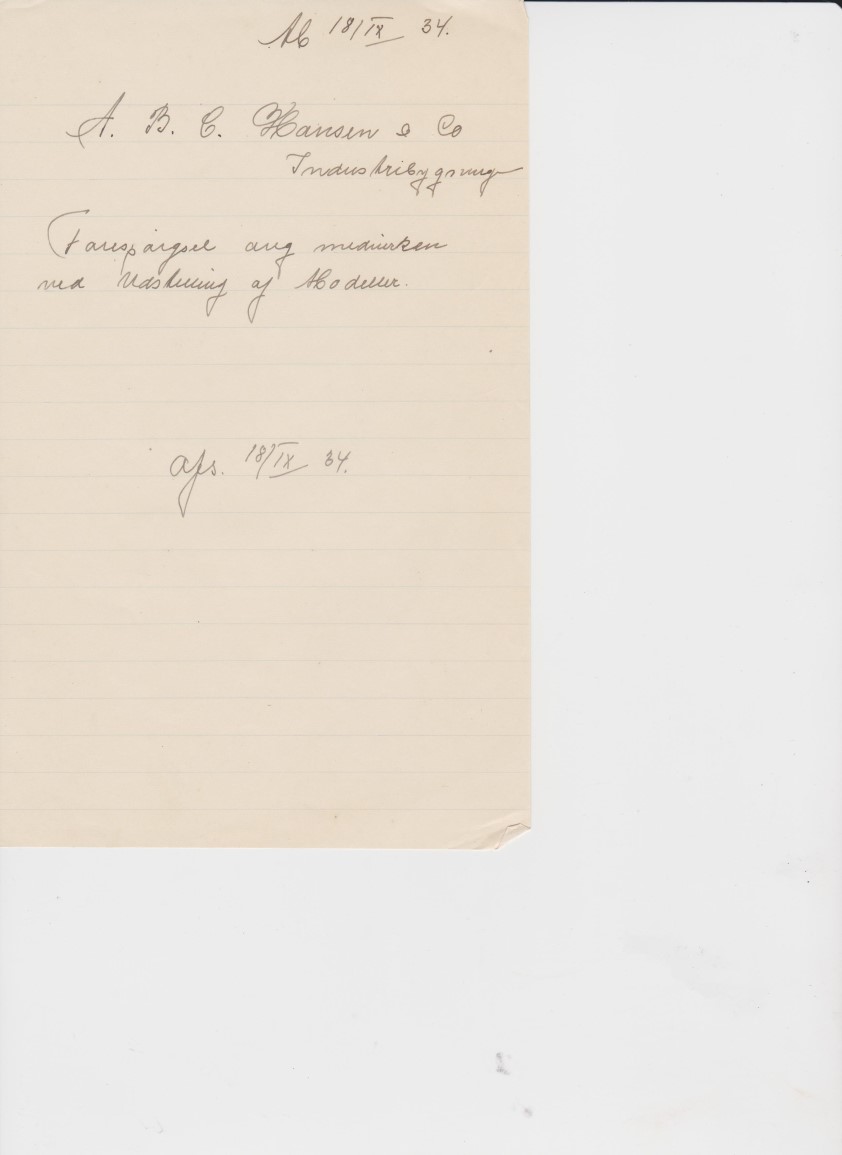 18/IX 34.
A. B. C. Hansen & Co
Industribygning
Forespørgsel ang medvirken
ved Udstilling af Modeller.
afs. 18/IX 34.